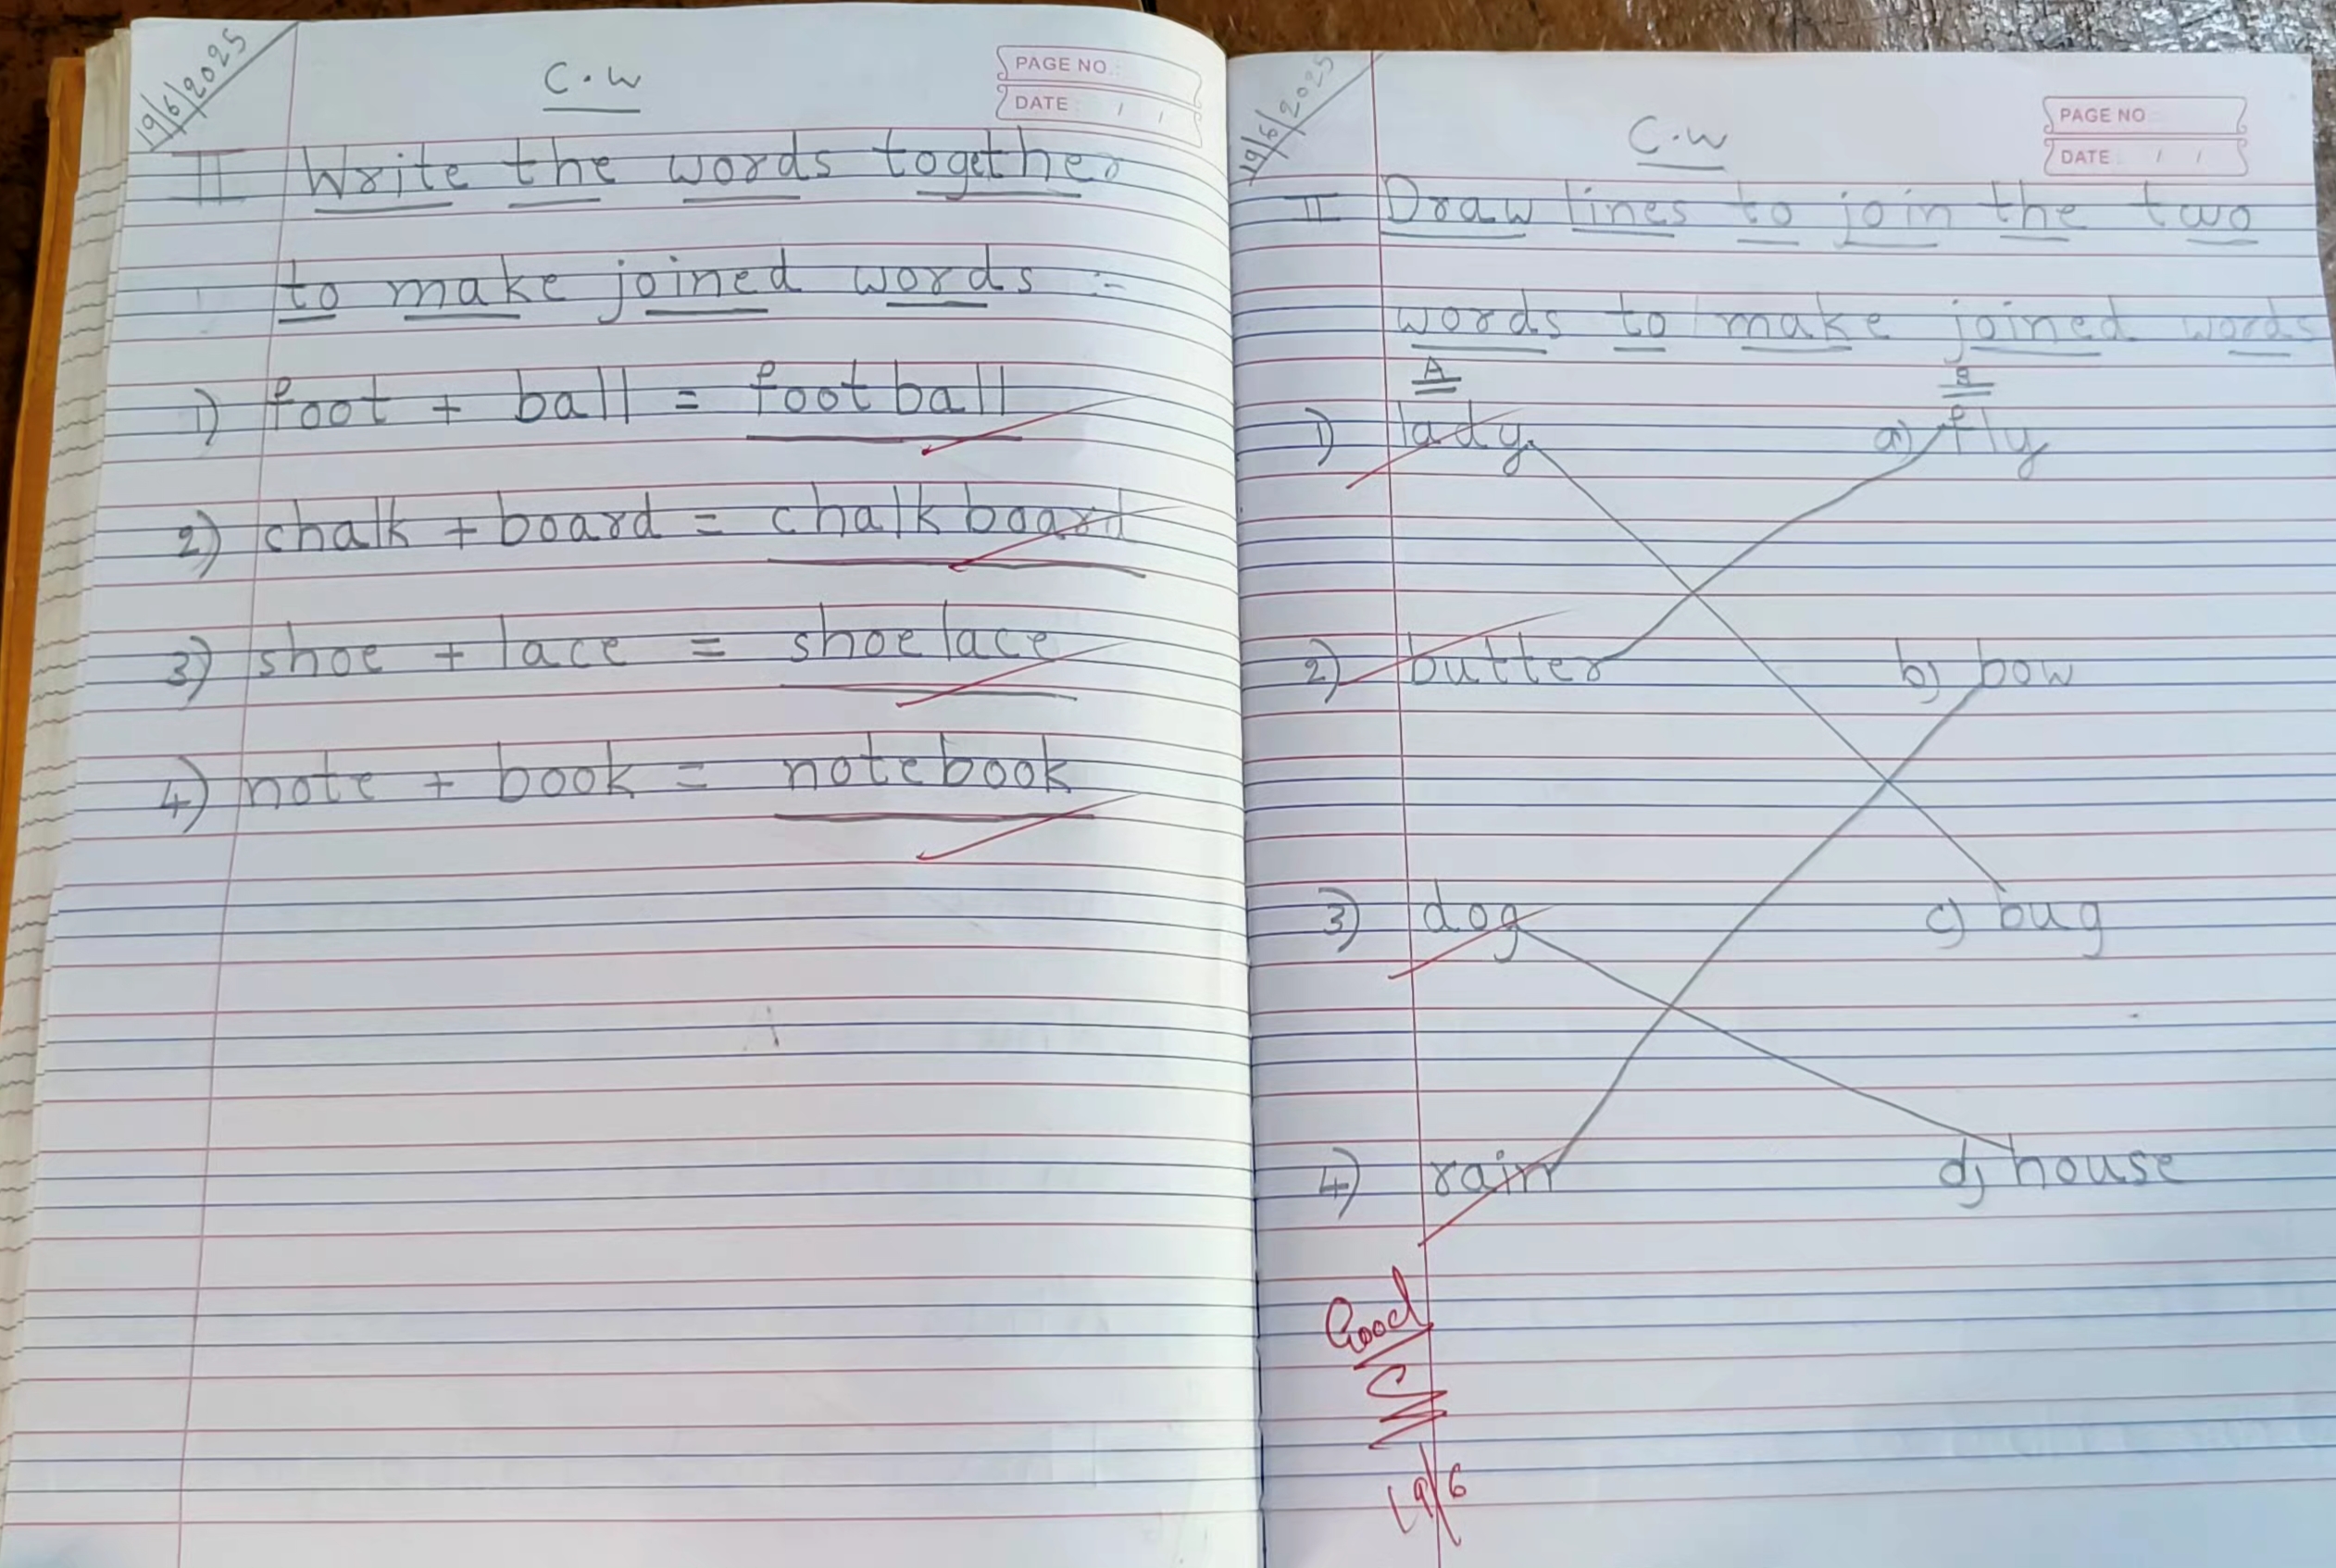 19/6/2025
C.W
PAGE NO.:
DATE: / /
II Write the words together
to make joined words :-
1) foot + ball = football
2) chalk + board = chalkboard
3) shoe + lace = shoelace
4) note + book = notebook
19/6/2025
C.W
PAGE NO
DATE: / /
II Draw lines to join the two
words to make joined words
A B
1) lady a) fly
2) butter b) bow
3) dog c) bug
4) rain d) house
Good
19/6